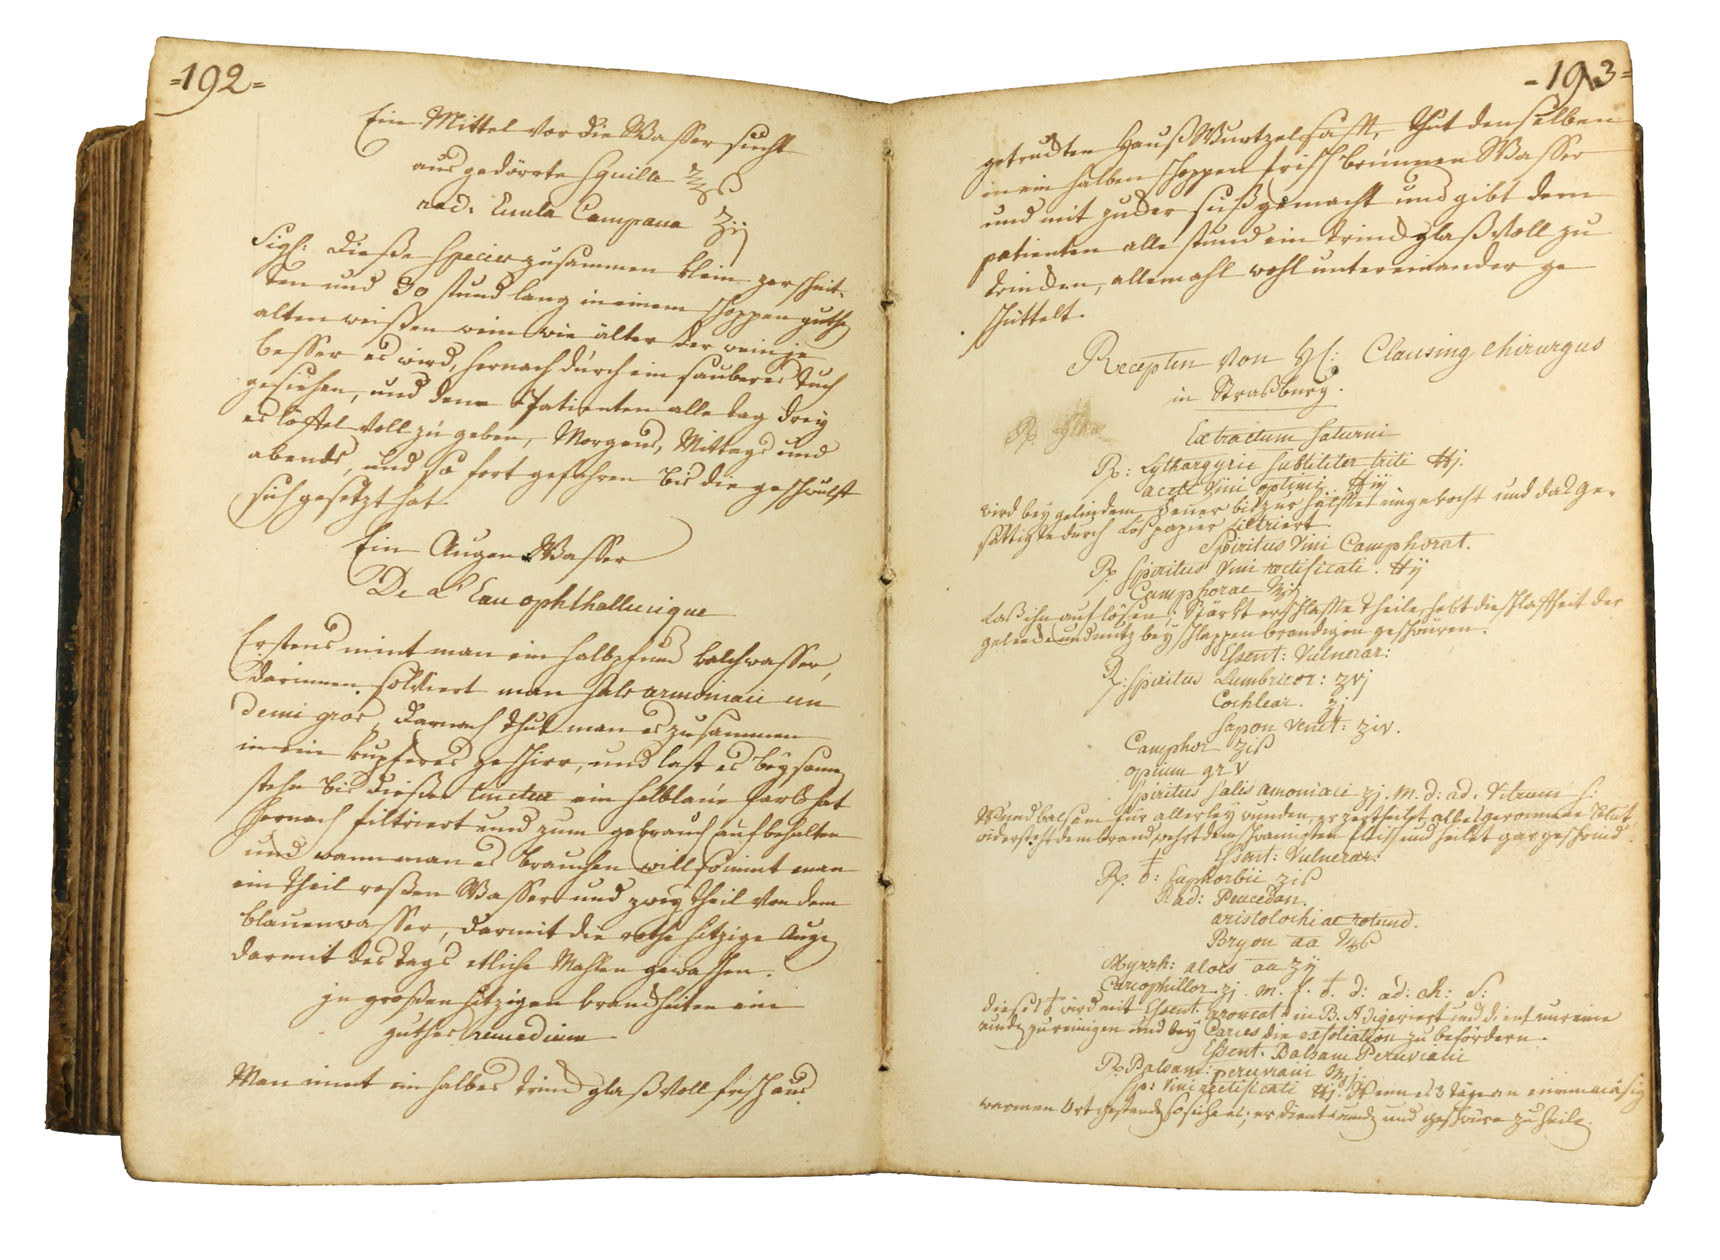 =192=
Ein Mittel vor die Wasser sucht
aus gedörrte Squilla ℥ß
rad: Enula Campana ʒij
Sigl: Dieße Species zusammen klein zerschnit-
ten und 30 stund lang in einem schoppen guthe
alten weißen wein wie älter der wein je
besser es wird, hernach durch ein sauberes Tuch
gesiehen, und dem Patienten alle tag drey
es löffel voll zu geben, Morgens, Mittags und
abends, und so fort gefahren bis die geschwulst
sich gesetzt hat
Ein Augen Wasser
De L'Eau ophthallmique
Erstens nimt man ein halb pfund kalchwasser,
darinnen solviert man Sals armoniaci un
demi gros, darnach thut man es zusammen
in ein kupferes geschirr, und last es beysame
stehn bis dieße tinctur ein helblaue farb hat
hernach filtriert und zum gebrauch aufbehalten
und wann man es brauchen will so nimt man
ein theil roßen Wasser und zwey theil von dem
blauenwasser, darmit die rothe hitzige Auge
darmit des tags etliche Mahlen gewaschen.
in großen hitzigen krankheiten ein
guthes Remedium
Man nimt ein halbes trinck glaß voll frisch aus
=193=
getruckten Hauß Wurtzel safft, thut denselben
in ein halben schoppen frisch brunnen Wasser
und mit zucker süß gemacht und gibt dem
patienten alle stund ein trinck glaß voll zu
trincken, allemahl wohl untereinander ge
schüttelt.
Recepten von H: Clausing chirurgus
in Straßburg.
Extractum Saturni
Rp: Lythargyrii subtiliter triti ℔j.
aceti Vini optimi ℔ij
wird bey gelindem Feuer bis zur hälfte eingekocht und das ge-
sättigte durch Löschpapier filtriert.
Spiritus Vini Camphorat.
Rp. Spiritus Vini rectificati. ℔ij
Camphorae ℥ij
Laß ihn auflösen; stärkt erschlaffte theile, hebt die schlaffheit der
gelencke und nutz bey schlappen brandigen geschwüren.
Essent: Vulnerar:
Rp: Spiritus Lumbricor: ʒvj
Cochlear. ʒj
Sapon venet: ʒiv.
Camphor ʒiß
opium gr V
Spiritus Salis amoniaci ʒj. M. d: ad. Vitrum S:
Wundbalsam für allerley wunden, er zertheilt alles geronnene Blut,
widersteht dem brand, wehrt dem schwammen fleisch und heilet gar geschwind
Essent: Vulnerar:
Rp. Euphorbii ʒiß
Rad: Peucedan.
aristolochiae rotund.
Bryon aa ℥ß
Myrrh: alois aa ʒij
Cariophillor ʒj. m. f. d: ad: ch: S:
dieses wird mit Essent. in B. A digeriert und dient unreine
wunden zu reinigen und bey Caries die exfoliation zu befördern.
Essent. Balsam Peruviani
Rp. Balsam: peruviani ℥j
Sp: Vini rectificati ℔j. Wenn es 3 tage an einem mäsig
warmen Ort gestanden so seihe es; er dient wund und geschwüre zu heile